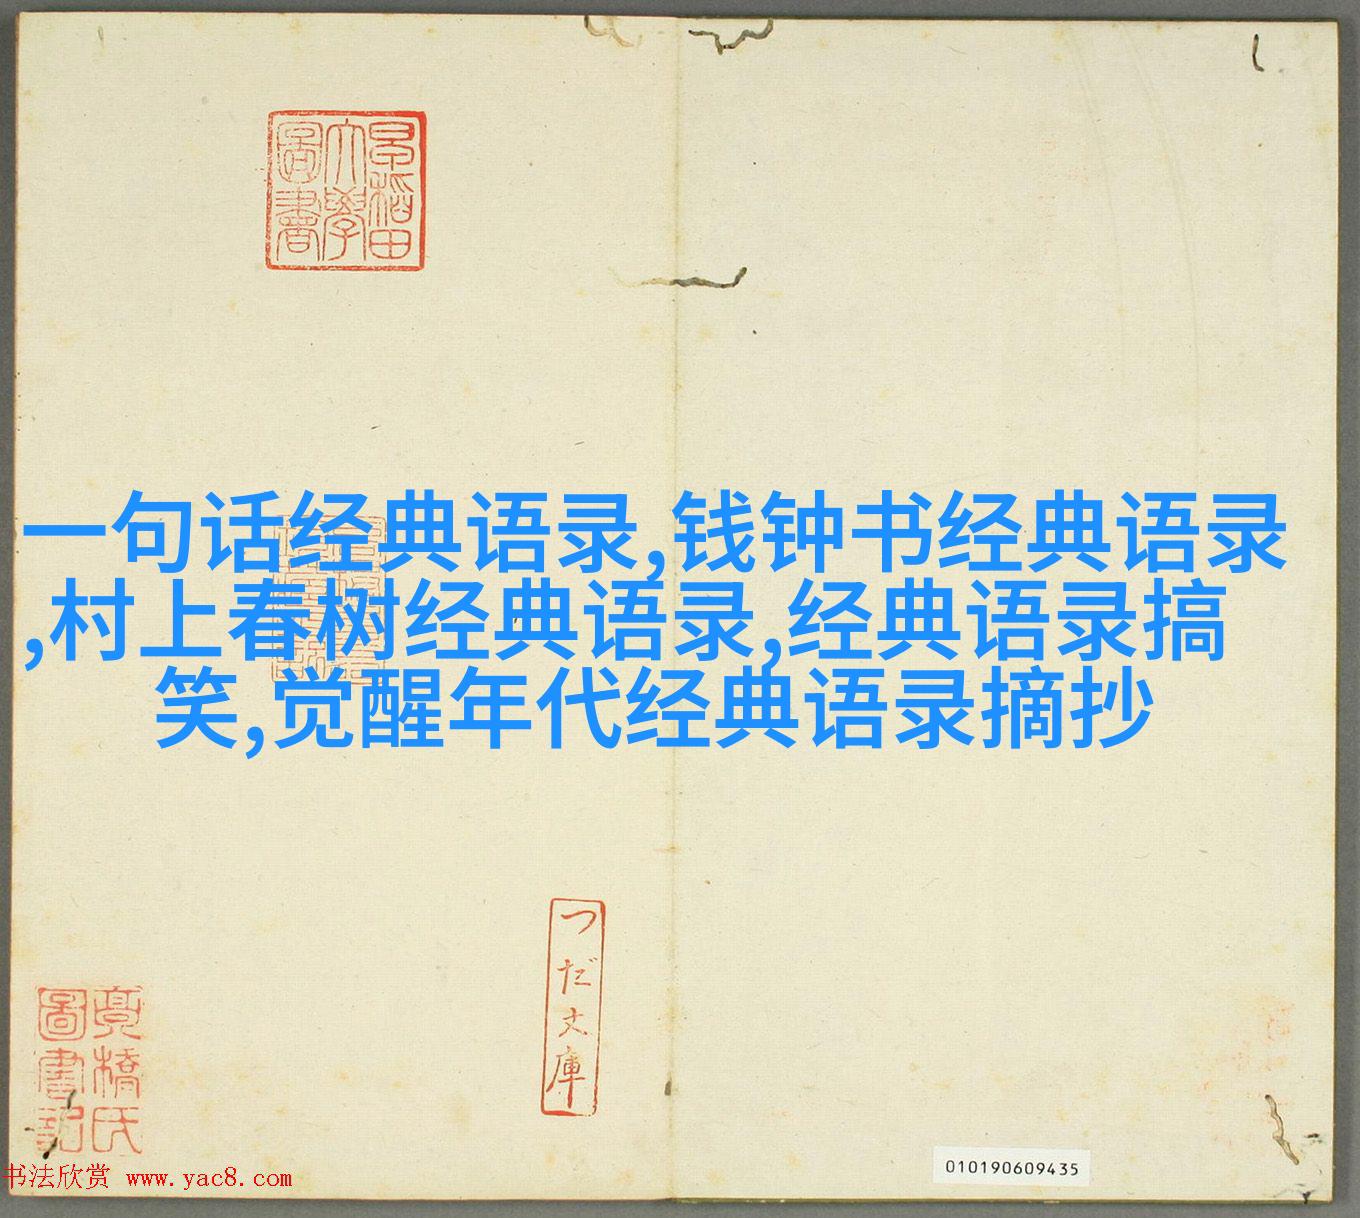 早稲田
大學
圖書
一句话经典语录,钱钟书经典语录
,村上春树经典语录,经典语录搞
笑,觉醒年代经典语录摘抄
つだ文庫
橋氏
圖書記
书法欣赏 www.yac8.com
010190609435